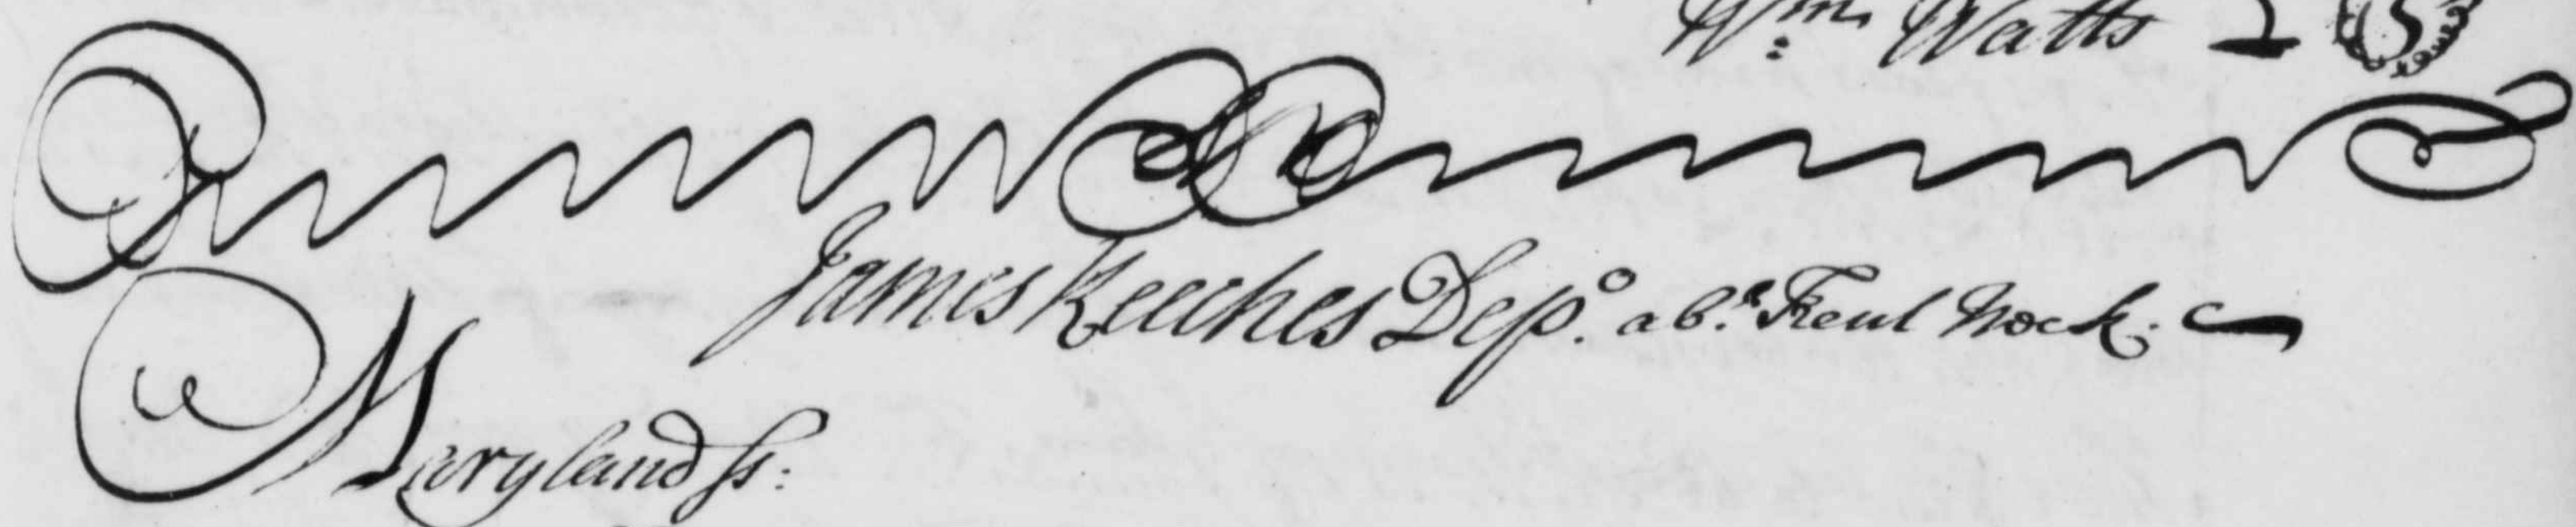 Wm: Watts
James Keeches Depo. abt. Trent Neck.
Maryland ss: